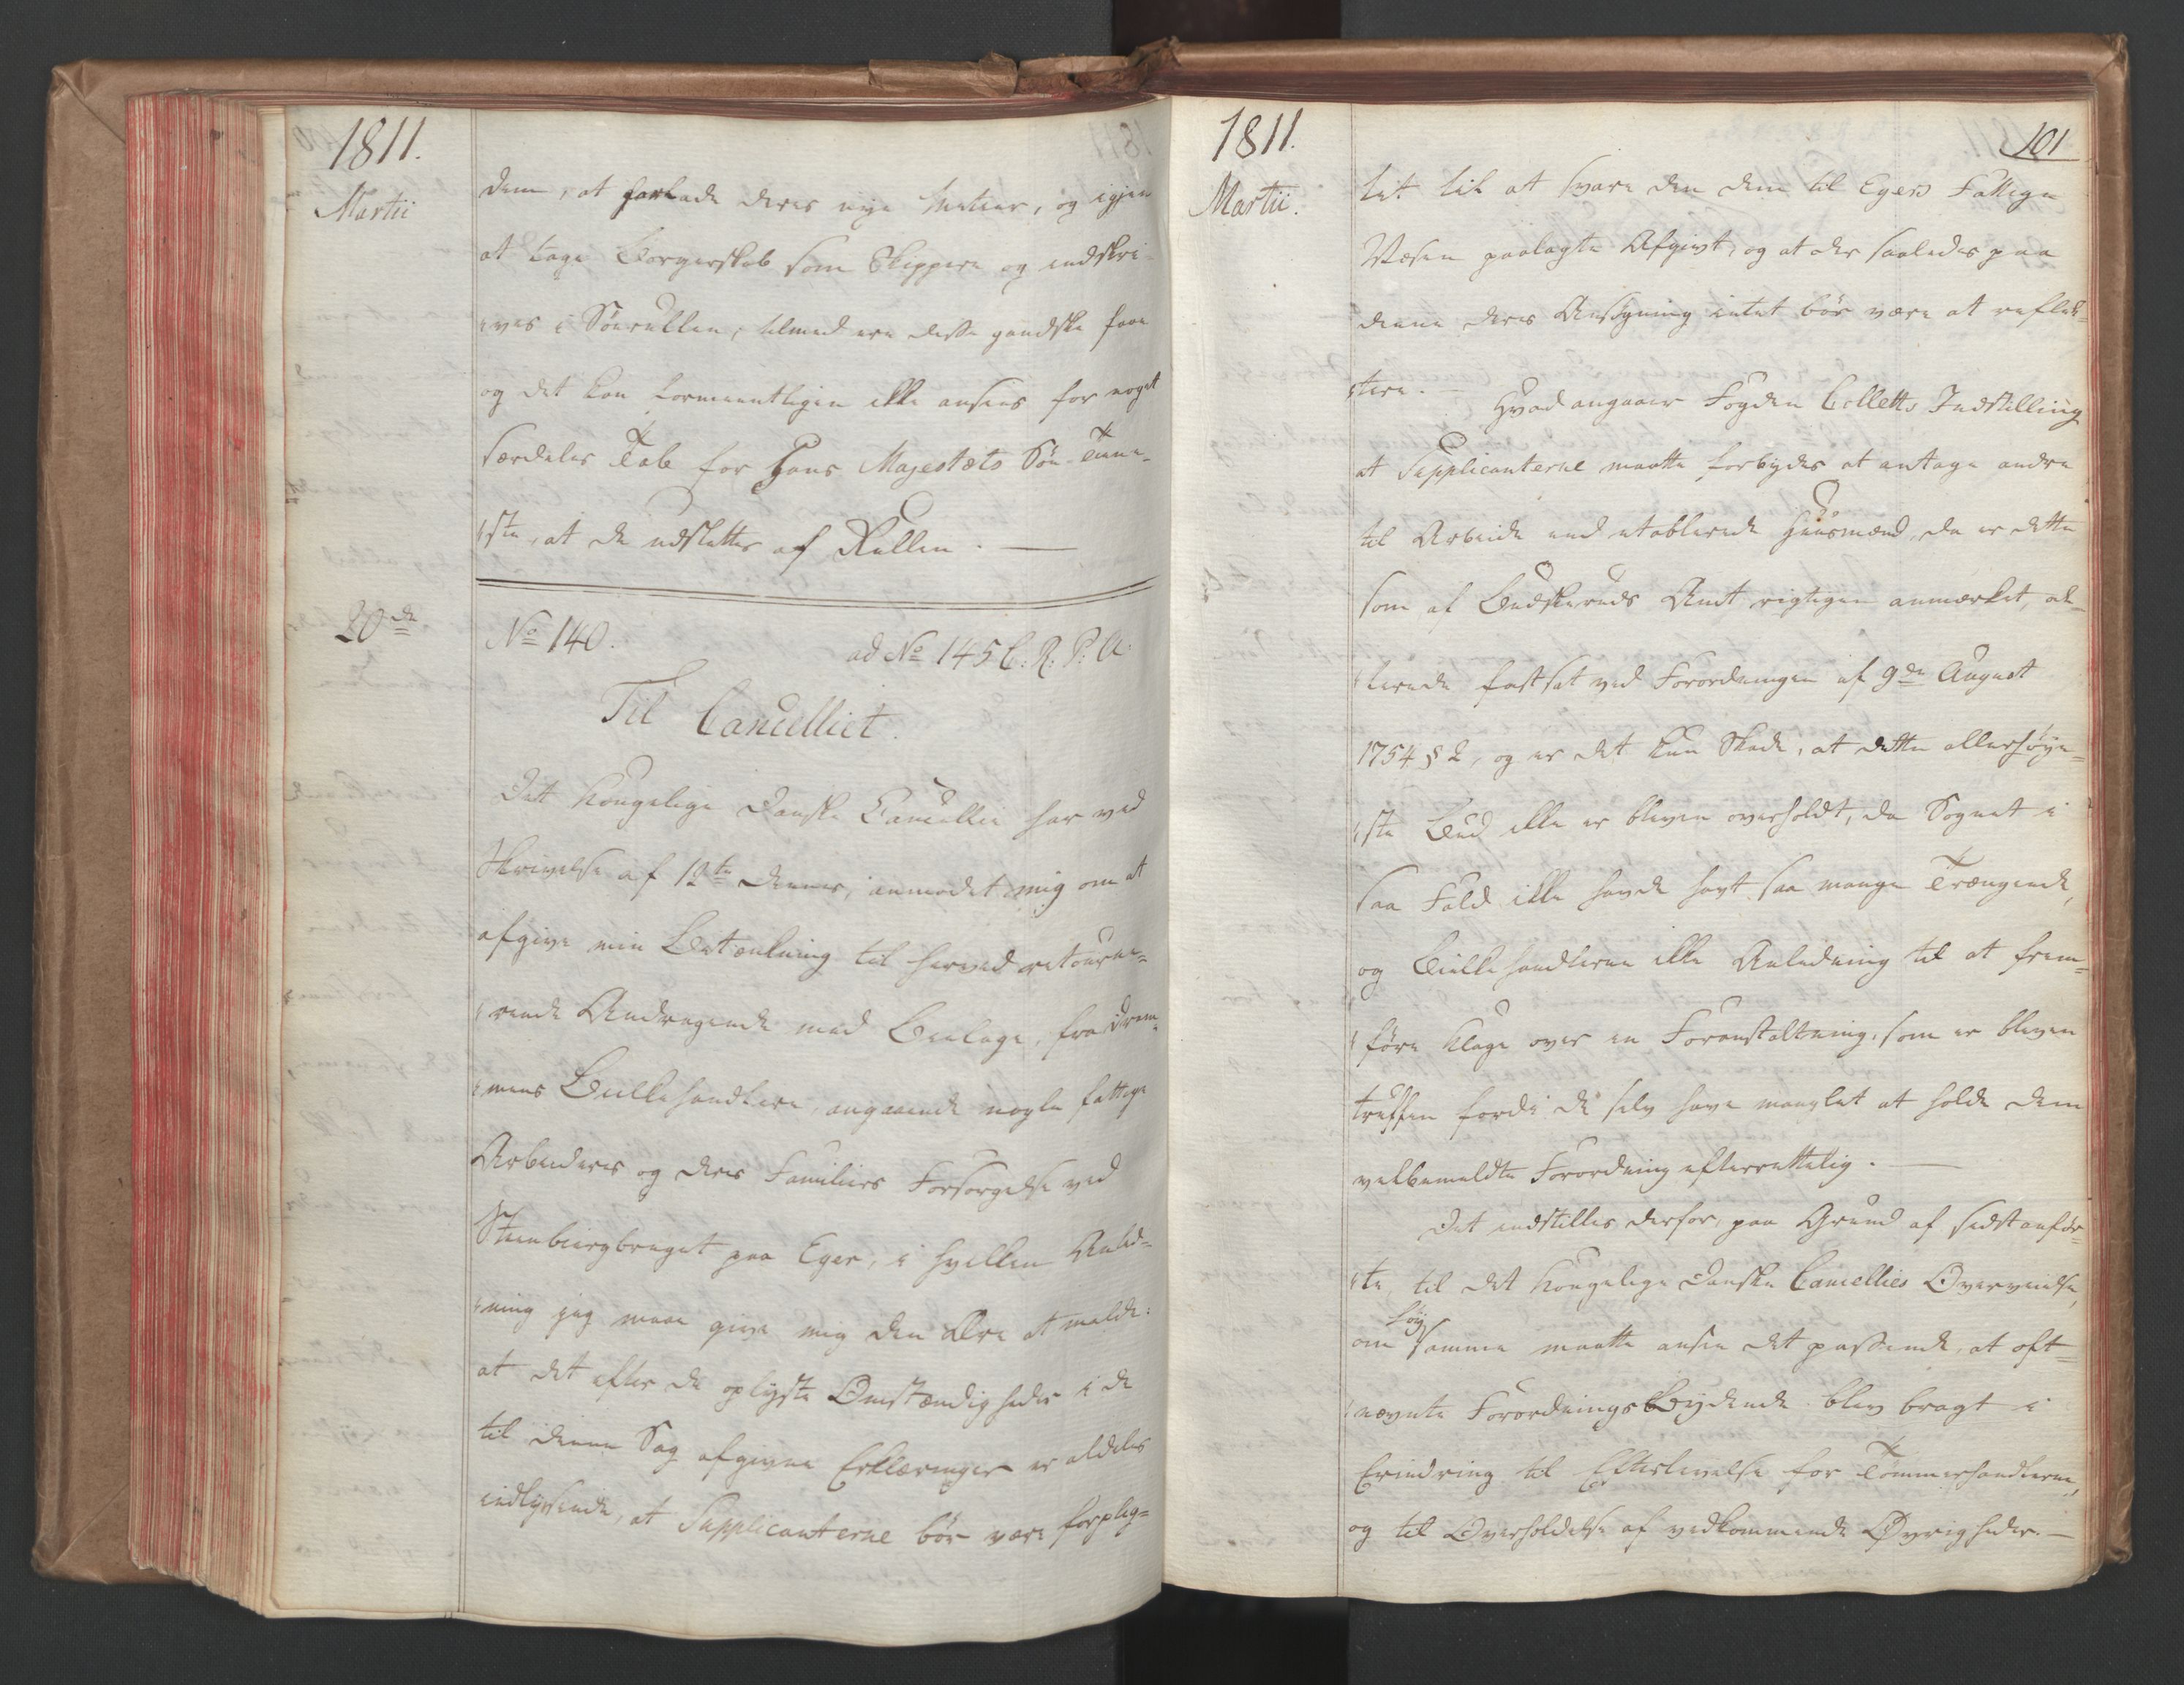 1811.
Martii
dem, at forlade deres nye Metier, og igjen
at tage Borgerskab som Skippere og indskri-
ves i Söerullen, tilmed ere disse gandske faae
og det kan formeentligen ikke ansees for noget
særdeles Tab for Hans Majestæts Söe-Tiene-
ste, at de udslettes af Rullen. —
20de
No 140.
ad No 145 C: R: P: A:
Til Cancelliet.
Det Kongelige Danske Cancellie har ved
Skrivelse af 12te dennes, anmodet mig om at
afgive min Betænkning til herved retourne-
rende Andragende med Beilage, fra Dram-
mens Bielkehandlere, angaaende nogle fattige
Arbeideres og deres Familiers Forsørgelse ved
Steenbiergbruget paa Eger, i hvilken Anled-
ning jeg maae give mig den Ære at melde:
at det efter de oplyste Omstændigheder i de
til denne Sag afgivne Erklæringer er aldeles
indlysende, at Supplicanterne bör være forplig-
1811.
101
Martii.
tet til at svare den dem til Egers Fattige
Væsen paalagte Afgivt, og at der saaledes paa
denne deres Ansögning intet bör være at reflec-
tere. —
Hvad angaaer Fogden Colletts Indstilling
at Supplicanterne maatte forbydes at antage andre
til Arbeide end etablerede Huusmænd, da er dette
som af Buskeruds Amt rigtigen anmærket, al-
lerede fastsat ved Forordningen af 9de August
1754 § 2, og er det kun Skade, at dette allerhöye-
ste Bud ikke er bleven overholdt, da Sognet i
saa Fald ikke havde havt saa mange Trængende,
og Bielkehandlerne ikke Anledning til at frem-
före Klage over en Foranstaltning, som er bleven
truffen fordi de selv have manglet at holde dem
velbemeldte Forordning efterrettelig. —
Det indstilles derfor, paa Grund af sidstanför-
te, til det Kongelige Danske Cancellies Overveielse,
om höysamme maatte ansee det passende, at oft-
nævnte Forordnings Bydende blev bragt i
Erindring til Efterlevelse for Tömmerhandlerne,
og til Overholdelse af vedkommende Øvrigheder. —